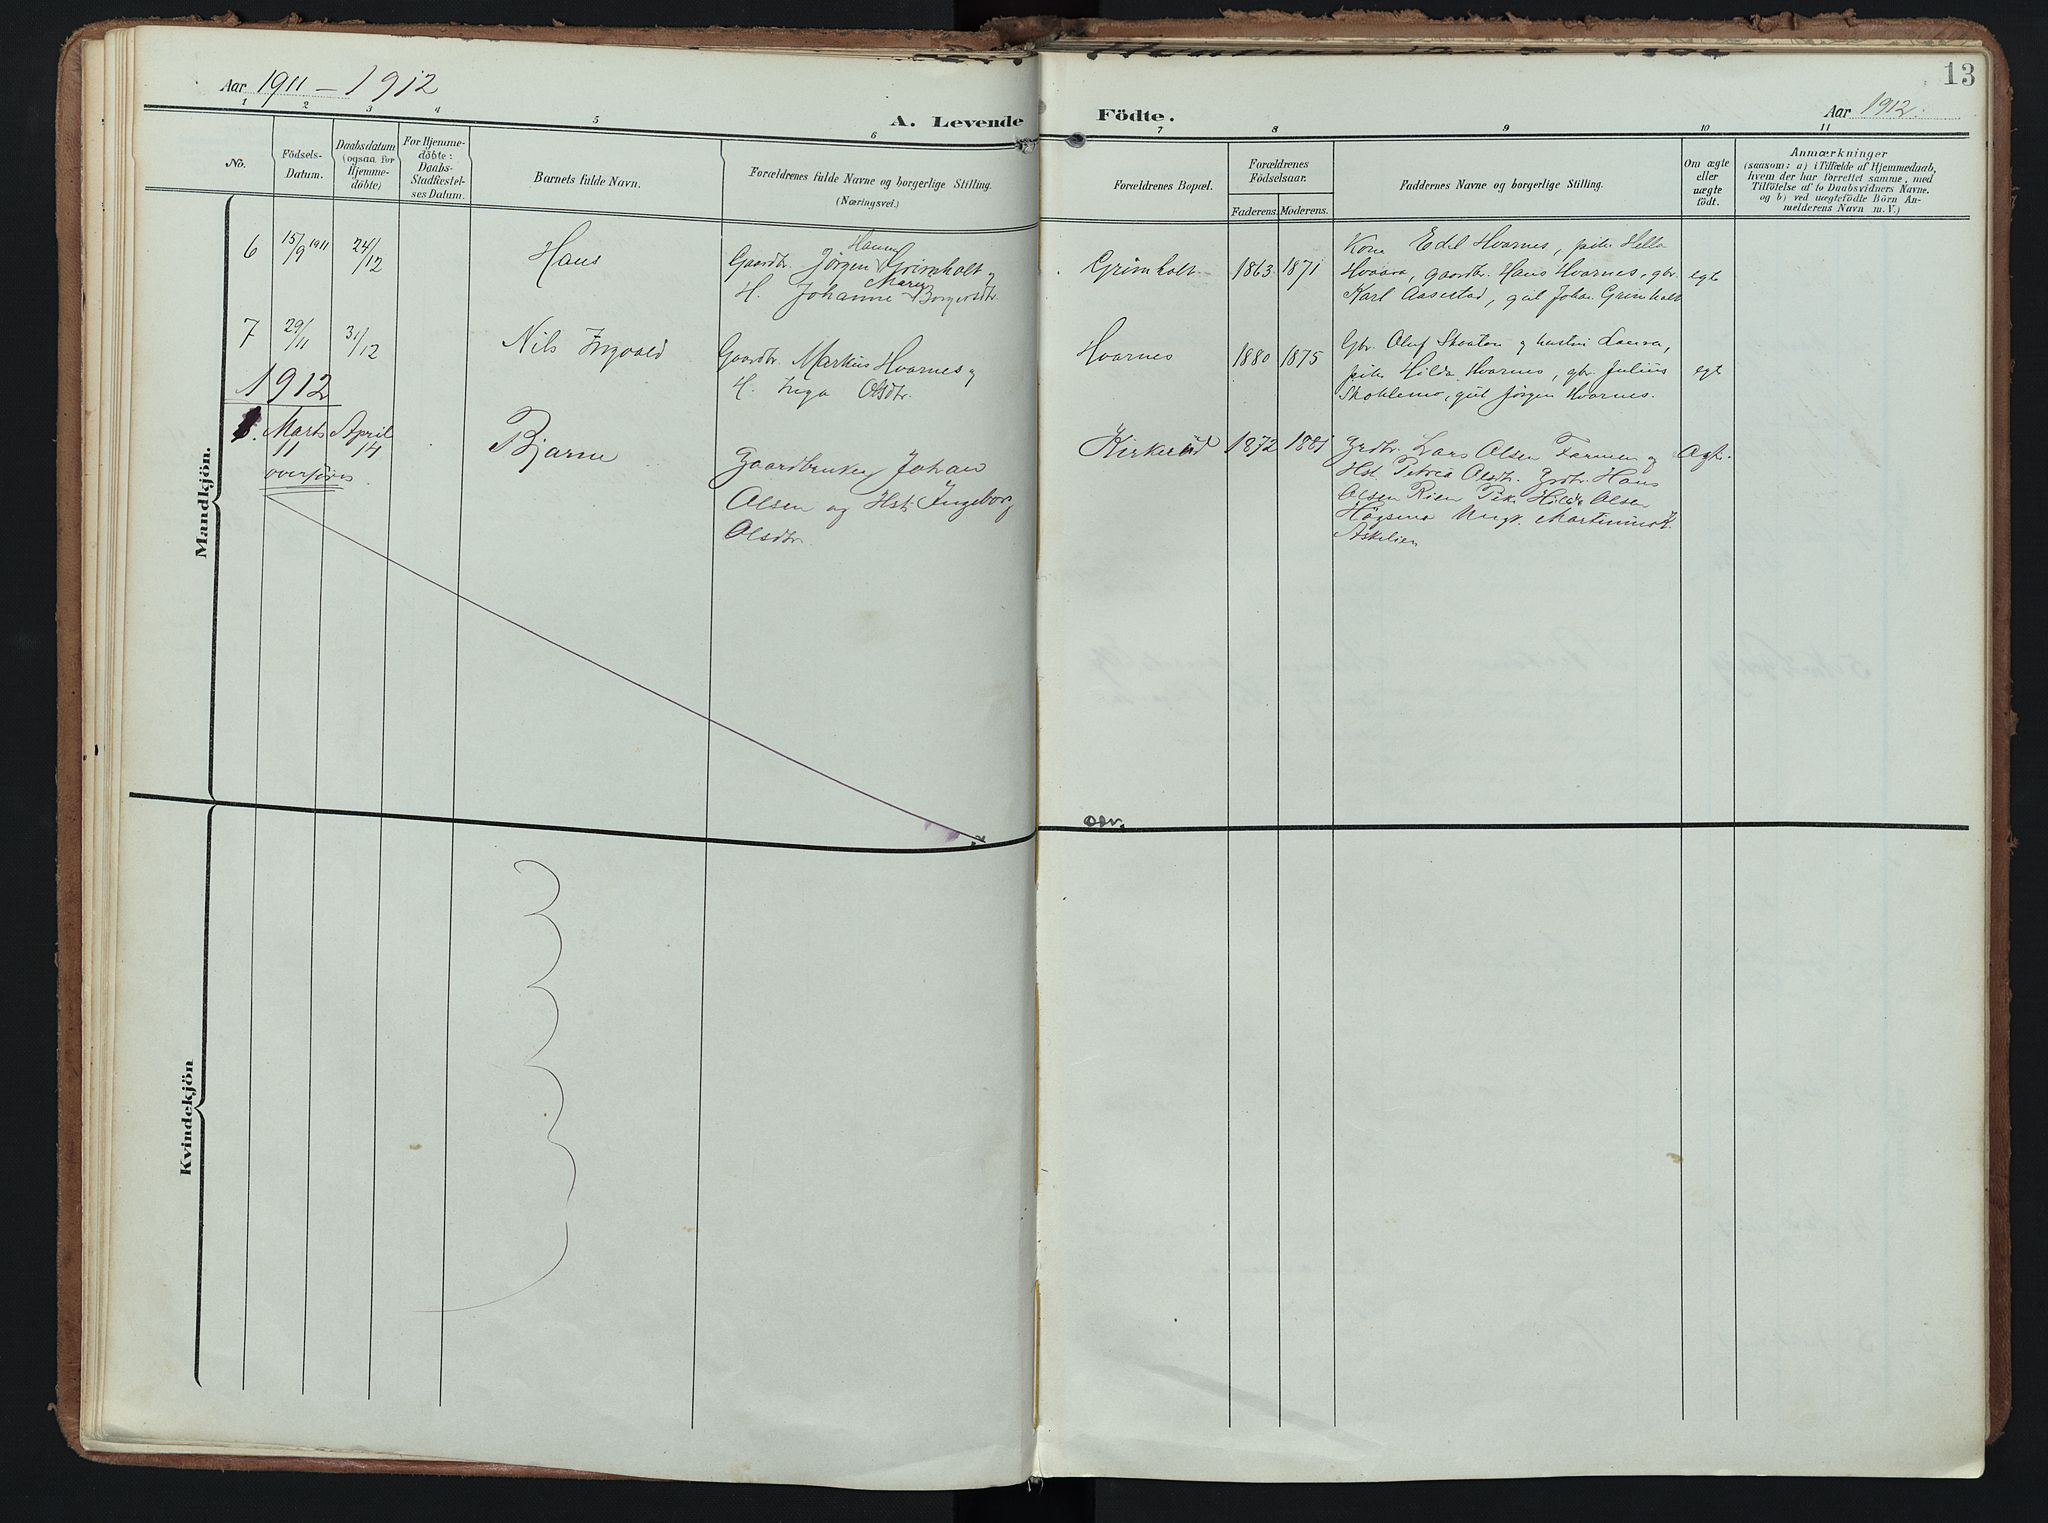 Aar 1911 – 1912
A. Levende
Födte.
13
Aar 1912.
1 2 3 4 5 6 7 8 9 10 11
No.
Födsels-
Datum.
Daabsdatum
(ogsaa for
Hjemme-
döbte)
For Hjemme-
döbte:
Daabs-
Stadfæstel-
ses Datum.
Barnets fulde Navn.
Forældrenes fulde Navne og borgerlige Stilling.
(Næringsvei.)
Forældrenes Bopæl.
Forældrenes
Födselsaar.
Faderens. Moderens.
Faddernes Navne og borgerlige Stilling.
Om ægte
eller
uægte
födt.
Anmærkninger
(saasom: a) i Tilfælde af Hjemmedaab,
hvem der har forrettet samme, med
Tilföielse af to Daabsvidners Navne.
og b) ved uægtefödte Börn An-
melderens Navn m. V.)
Mandkjön.
6
15/9 1911
24/12
Hans
Hansen
Gaardbr. Jørgen Grimholt og
Marie
H. Johanne Borgersdtr.
Grimholt
1863 1871
Kone Edel Hvarnes, pike Hella
Hvaara, gaardbr. Hans Hvarnes, gbr.
Karl Aasestad, gut Johan Grimholt
egte
7
29/11
31/12
Nils Ingvald
Gaardbr. Markus Hvarnes og
H. Inga Olsdtr.
Hvarnes
1880 1875
Gbr. Oluf Skaatan og hustru Laura,
pike Hilda Hvarnes, gbr. Julius
Skoklemo, gut Jørgen Hvarnes.
egt
1912
Marts
11
April
14
Bjarne
Gaardbruker Johan
Olsen og Hst. Ingeborg
Olsdtr.
Kirkerød
1872 1881
Grdbr. Lars Olsen Farmen og
Hst. Petrea Olsdtr. Grdbr. Hans
Olsen Rien Pike Hilda Olsen
Högsmo Ungk. Martinius K.
Askelien
Ægte.
overføres
ovr.
Kvindekjön